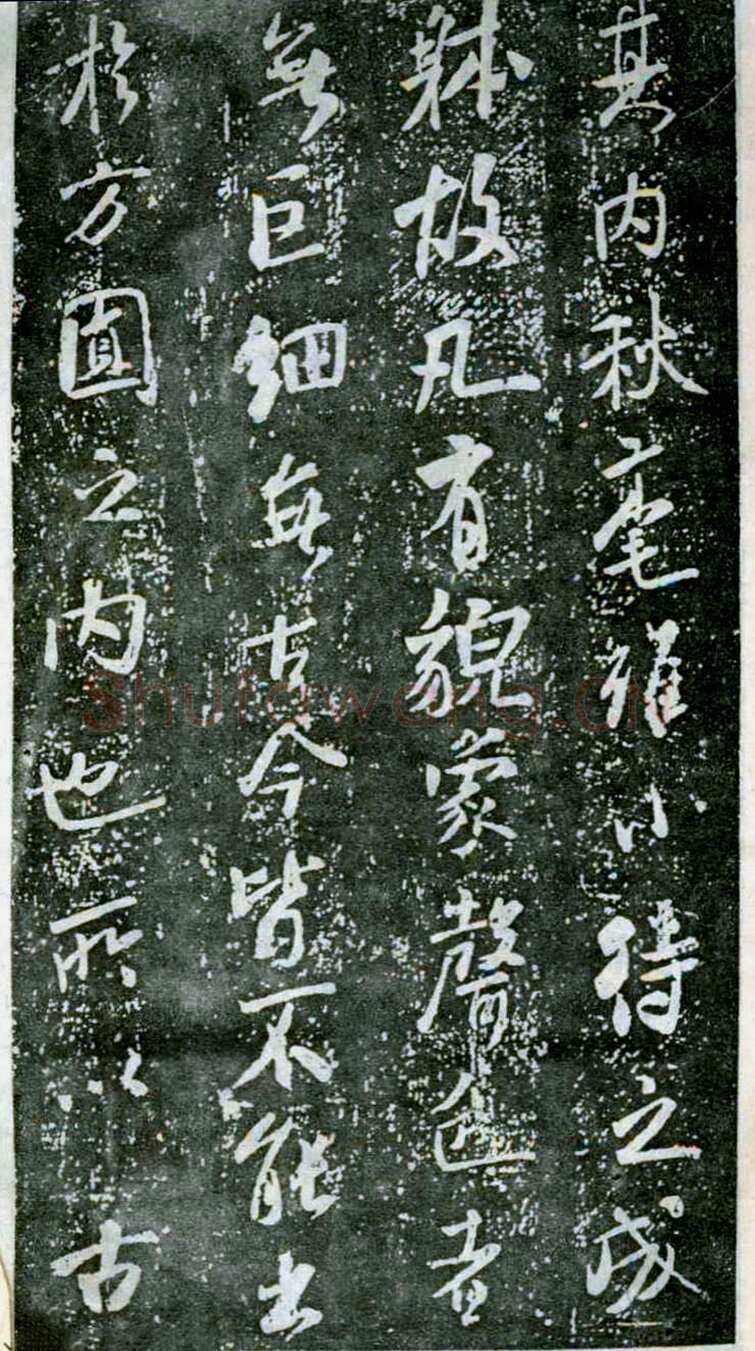 其内秋毫雖小得之成
躰故凡有貌象聲色者
無巨細無古今皆不能出
於方圓之内也所以古
Shufawang.cn